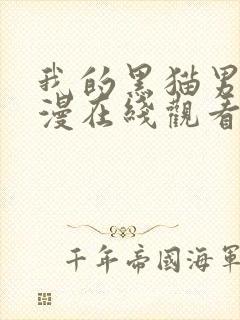 我的黑猫男
漫在綫觀看
千年帝國海軍